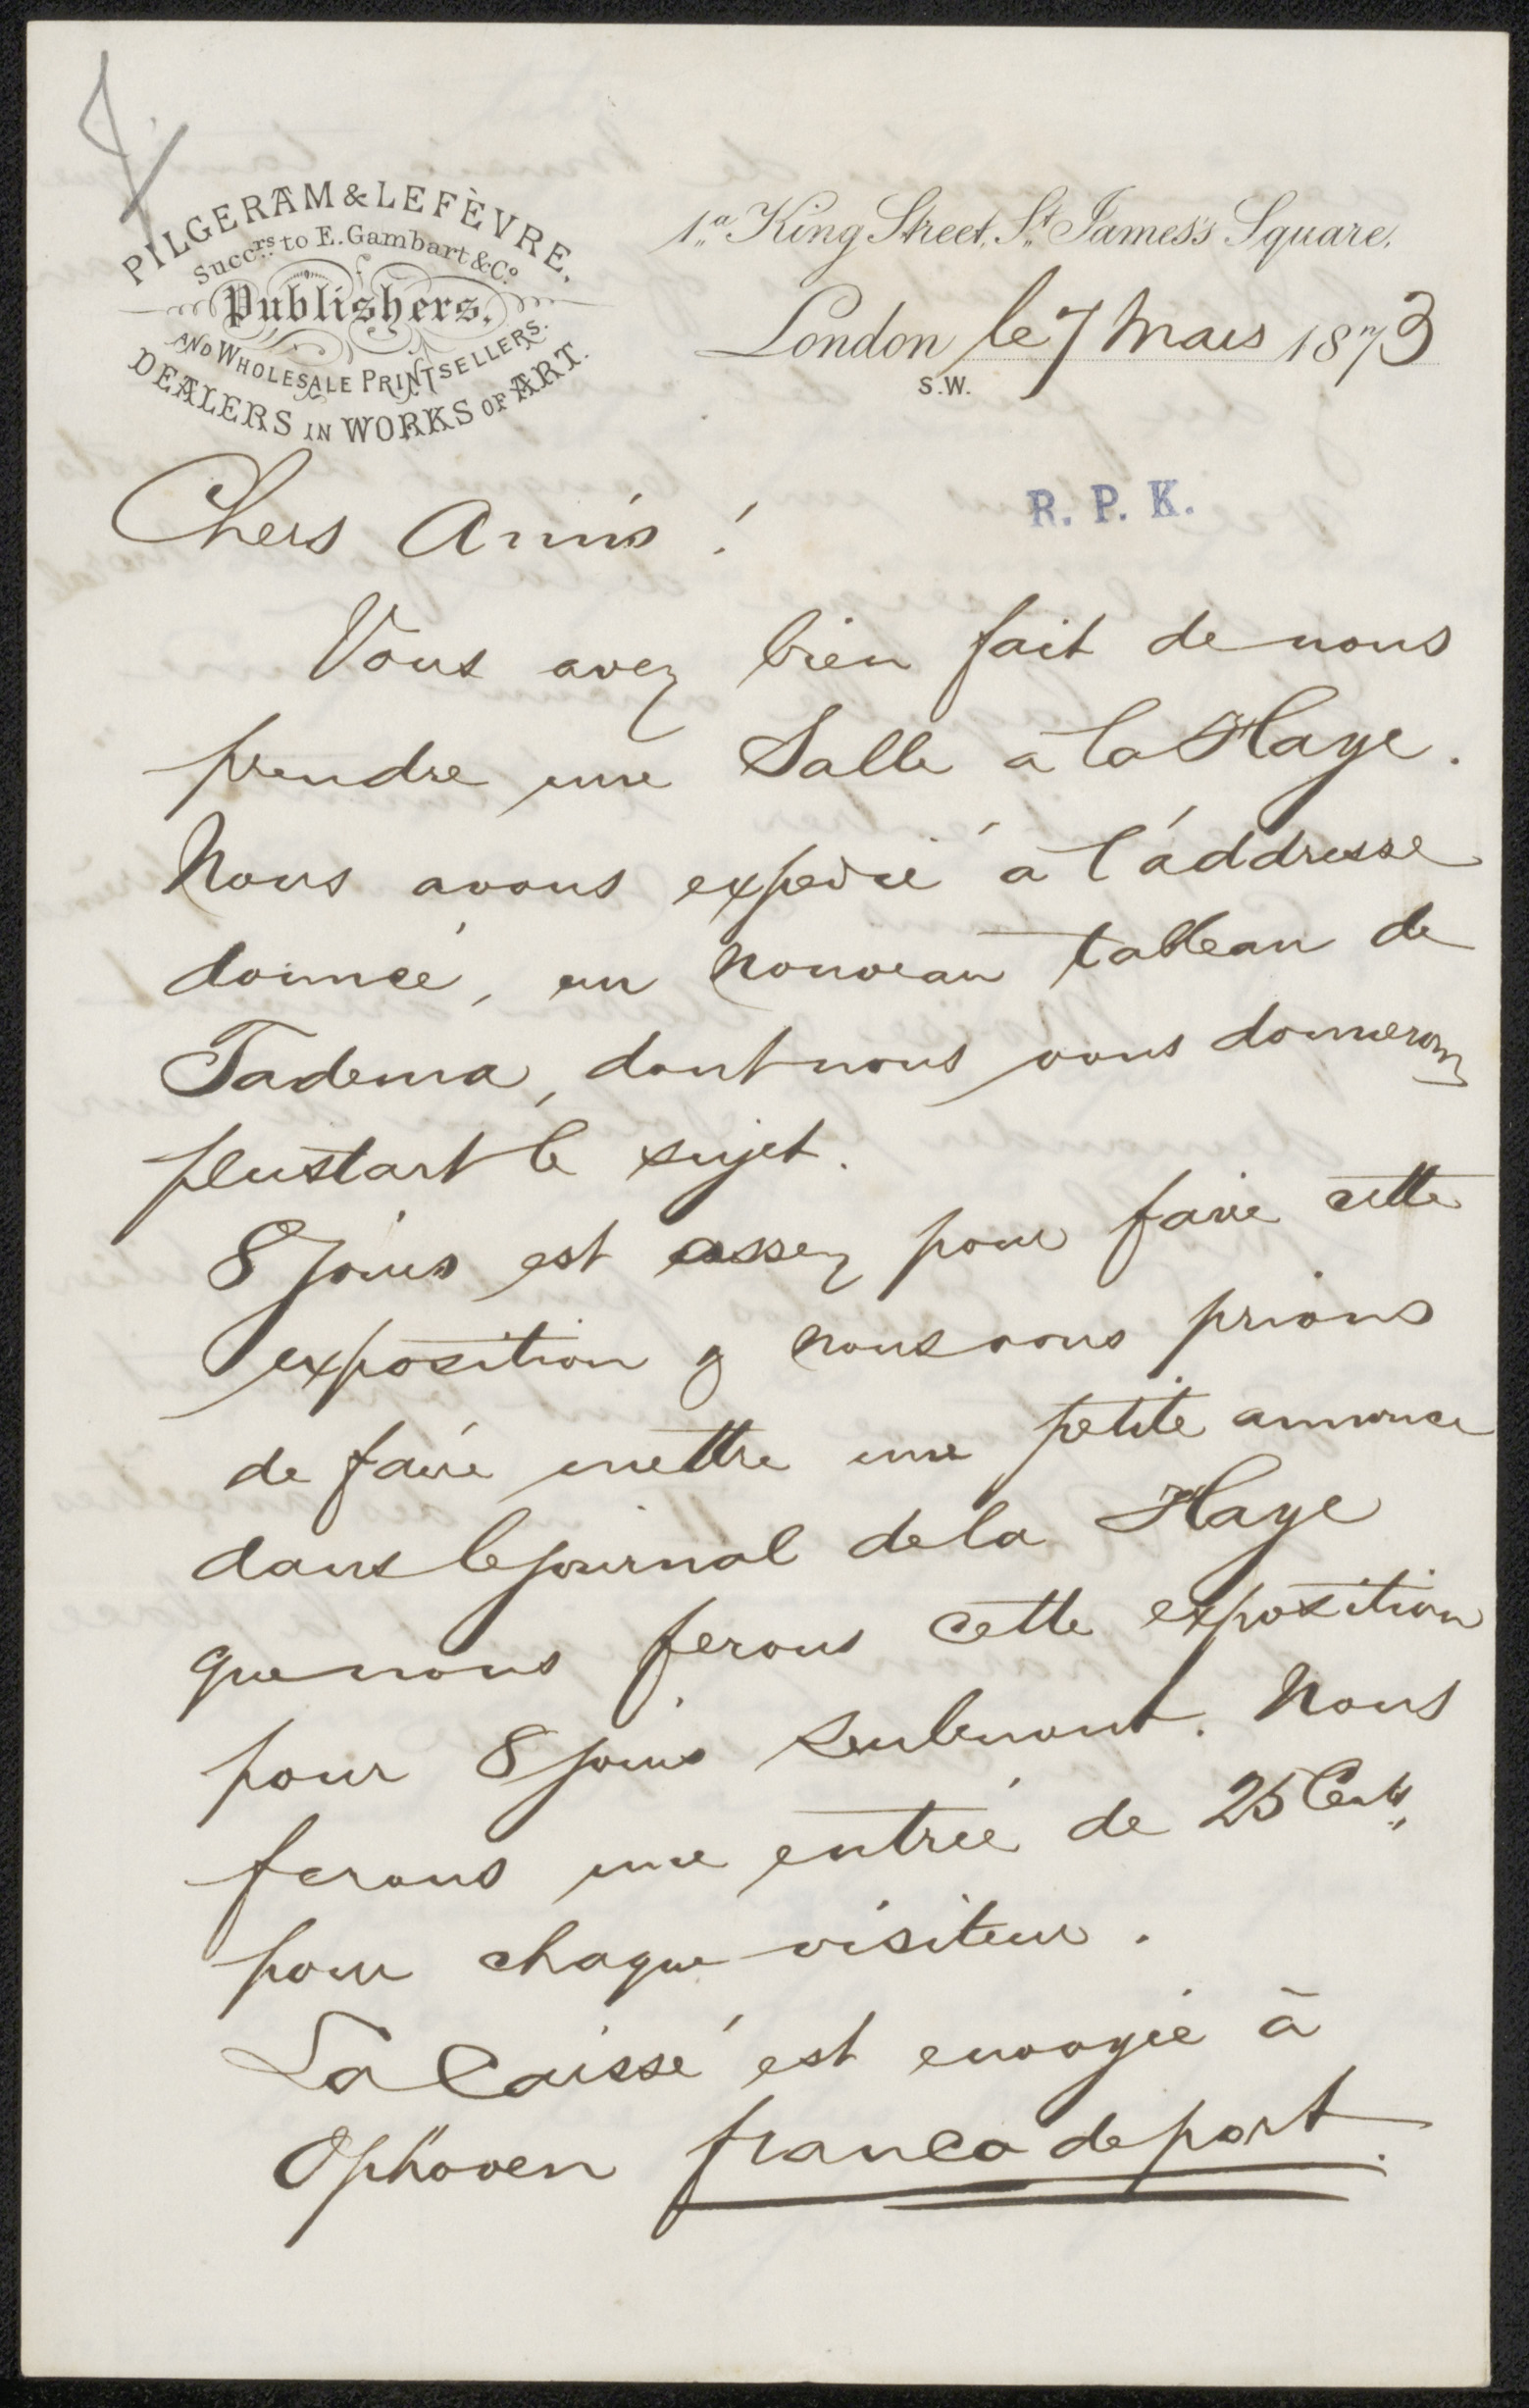 PILGERAM & LEFÈVRE.
Succrs. to E. Gambart & Co.
Publishers,
AND WHOLESALE PRINTSELLERS.
DEALERS IN WORKS OF ART.
1a. King Street, St. James's Square,
London le 7 Mars 1873
S.W.
R. P. K.
Chers Amis !
Vous avez bien fait de nous
prendre une Salle a la Haye.
Nous avons expedié a l'áddresse
donnée, un nouveau tableau de
Tadema, dont nous vous donnerons
plustart le sujet.
8 jours est assez pour faire cette
exposition & nous vous prions
de faire mettre une petite annonce
dans le journal de la Haye
que nous ferons cette exposition
pour 8 jours seulement. Nous
ferons une entrée de 25 Cents
pour chaque visiteur.
La Caisse est envoyée à
Ophoven franco de port.